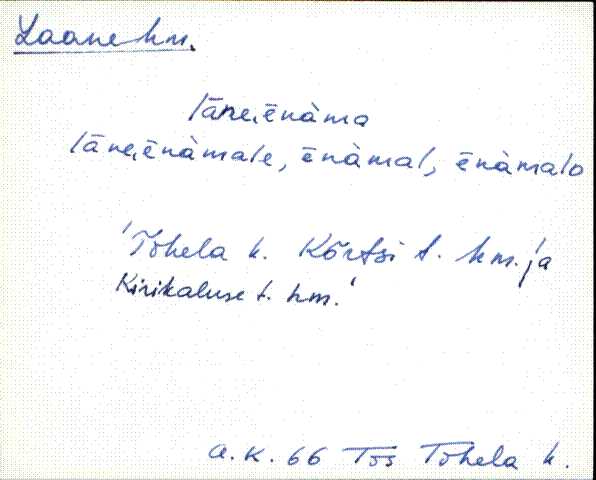 Laane hm.
lāne,ēnàma
lāne,ēnàmale, ēnàmal, ēnàmalo
'Tõhela k. Kõrtsi t. hm. ja
Kirikaluse t. hm.'
a.K. 66 Tõs Tõhela k.